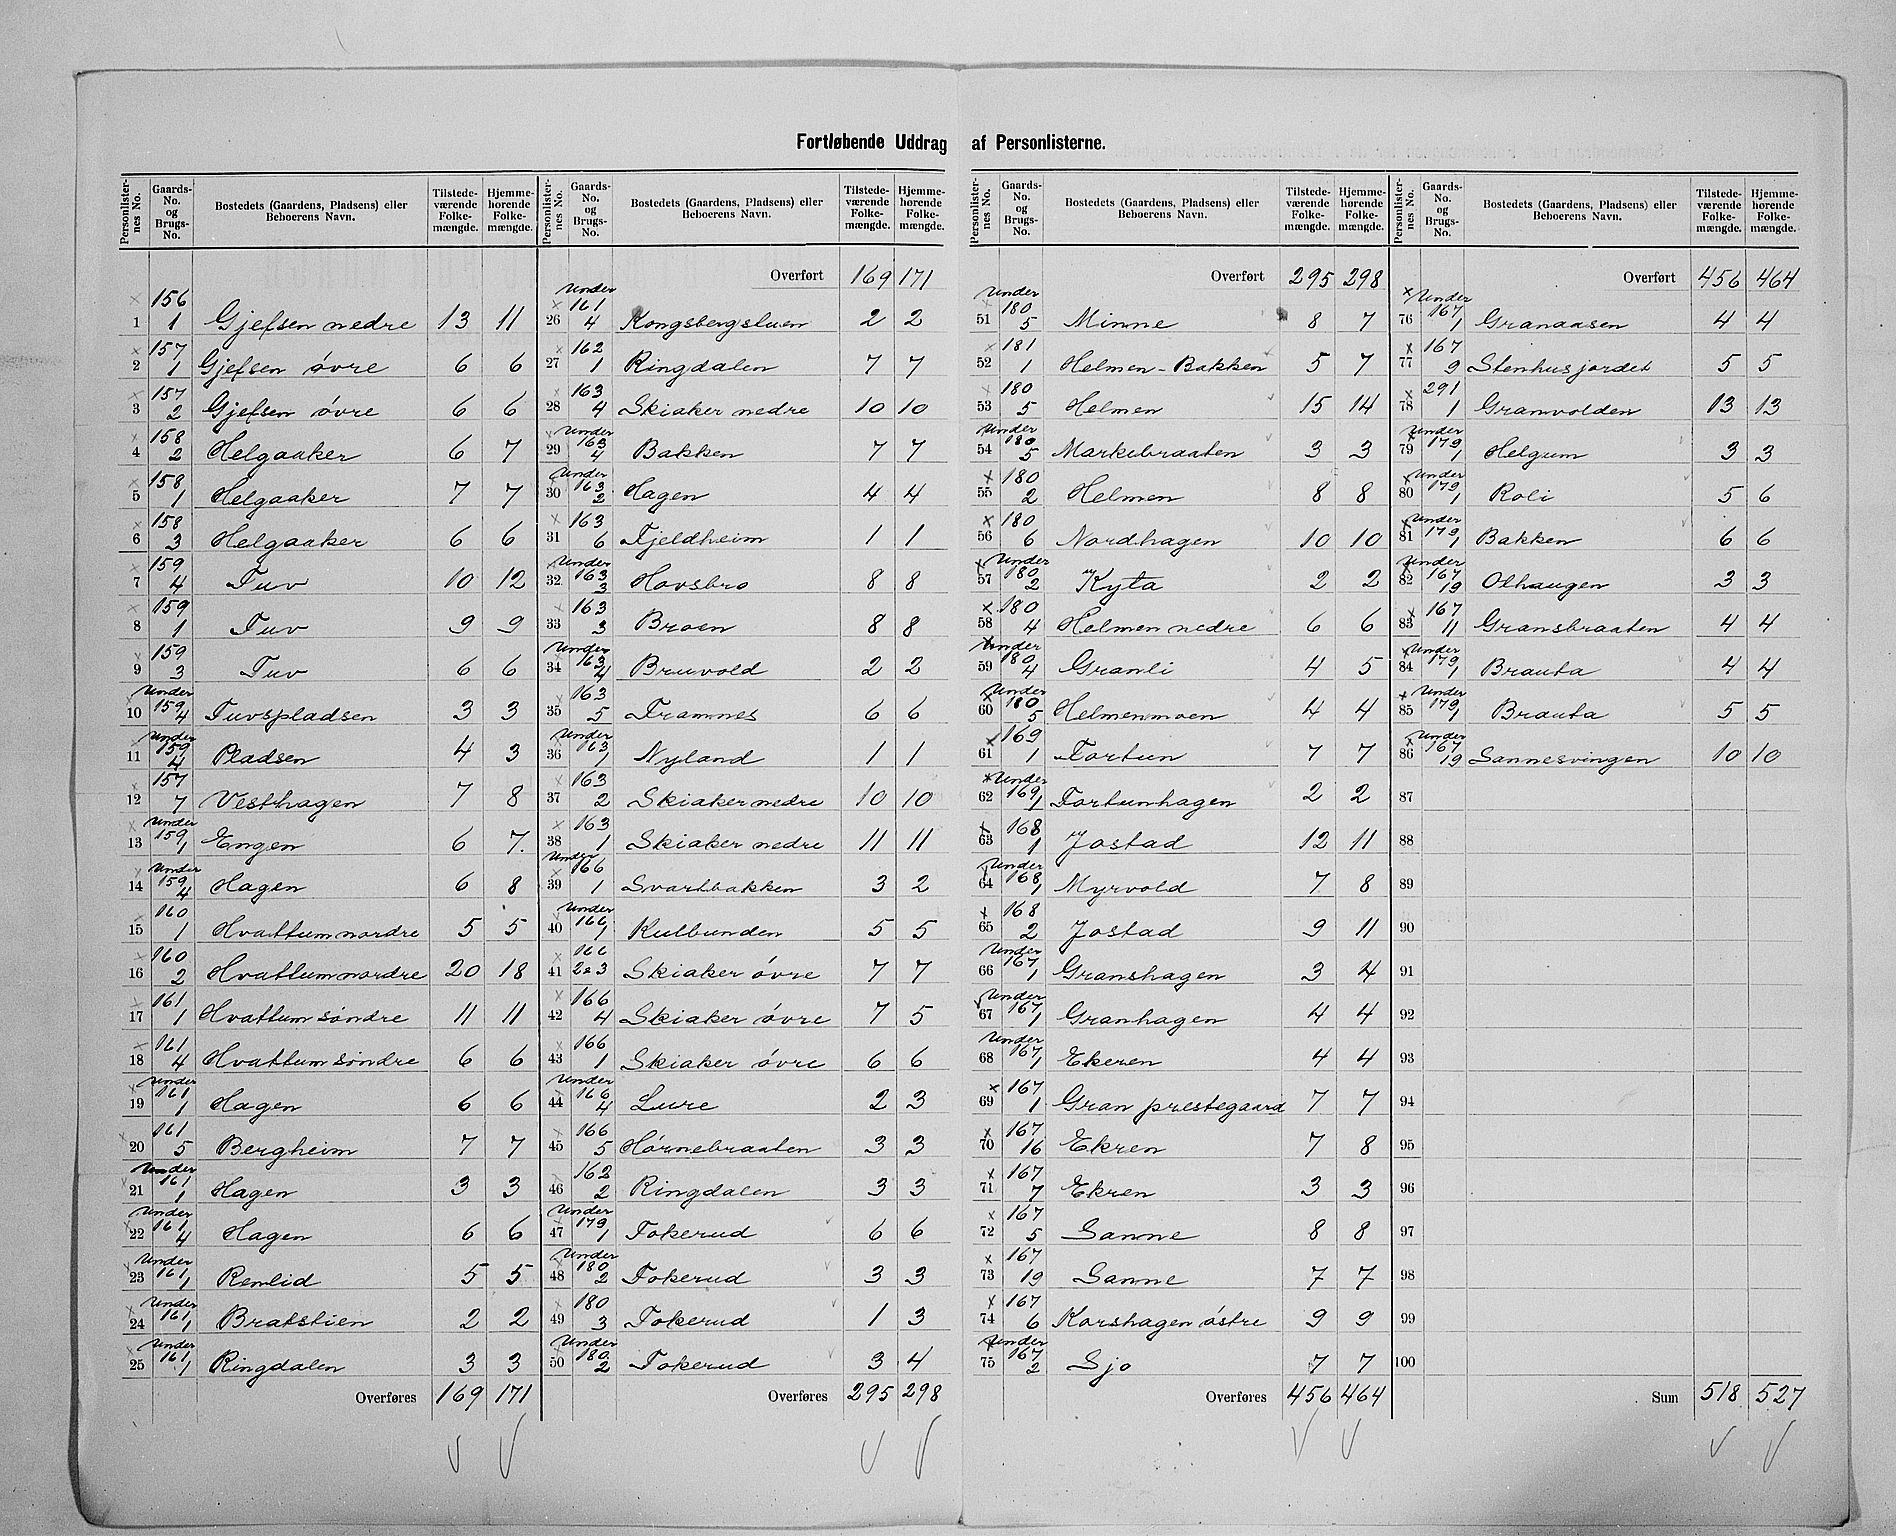 Fortløbende Uddrag af Personlisterne.
Personlisternes No. | Gaards-No. og Brugs-No. | Bostedets (Gaardens, Pladsens) eller Beboerens Navn. | Tilstedeværende Folkemængde. | Hjemmehørende Folkemængde.
1 156 1 Gjefsen nedre 13 11
2 157 1 Gjefsen øvre 6 6
3 157 2 Gjefsen øvre 6 6
4 158 2 Helgaaker 6 7
5 158 1 Helgaaker 7 7
6 158 3 Helgaaker 6 6
7 159 4 Tuv 10 12
8 159 1 Tuv 9 9
9 159 3 Tuv 6 6
10 Under 159 4 Tuvspladsen 3 3
11 Under 159 4 Pladsen 4 3
12 157 7 Vesthagen 7 8
13 Under 159 1 Engen 6 7.
14 Under 159 4 Hagen 6 8
15 160 1 Hvattum nordre 5 5
16 160 2 Hvattum nordre 20 18
17 161 1 Hvattum søndre 11 11
18 161 4 Hvattum søndre 6 6
19 Under 161 1 Hagen 6 6
20 161 5 Bergheim 7 7
21 Under 161 1 Hagen 3 3
22 Under 161 4 Hagen 6 6
23 Under 161 1 Remlid 5 5
24 Under 161 1 Bratstien 2 2
25 Under 161 1 Ringdalen 3 3
Overføres 169 171
Personlisternes No. | Gaards-No. og Brugs-No. | Bostedets (Gaardens, Pladsens) eller Beboerens Navn. | Tilstedeværende Folkemængde. | Hjemmehørende Folkemængde.
Overført 169 171
26 Under 161 4 Kongsbergstuen 2 2
27 162 1 Ringdalen 7 7
28 163 4 Skiaker nedre 10 10
29 Under 163 4 Bakken 7 7
30 Under 163 2 Hagen 4 4
31 163 6 Fjeldheim 1 1
32 Under 163 3 Hovsbro 8 8
33 163 3 Broen 8 8
34 Under 163 4 Bruvold 2 2
35 163 5 Framnes 6 6
36 Under 163 1 Nyland 1 1
37 163 2 Skiaker nedre 10 10
38 163 1 Skiaker nedre 11 11
39 Under 166 1 Svartbakken 3 2
40 Under 166 1 Kulbunden 5 5
41 166 2&3 Skiaker øvre 7 7
42 166 4 Skiaker øvre 7 5
43 166 1 Skiaker øvre 6 6
44 Under 166 4 Lure 2 3
45 166 5 Hørnebraaten 3 3
46 162 2 Ringdalen 3 3
47 Under 179 1 Tokerud 6 6
48 Under 180 2 Tokerud 3 3
49 180 3 Tokerud 1 3
50 Under 180 2 Tokerud 3 4
Overføres 295 298
Personlisternes No. | Gaards-No. og Brugs-No. | Bostedets (Gaardens, Pladsens) eller Beboerens Navn. | Tilstedeværende Folkemængde. | Hjemmehørende Folkemængde.
Overført 295 298
51 Under 180 5 Minne 8 7
52 181 1 Helmen-Bakken 5 7
53 180 5 Helmen 15 14
54 Under 180 5 Markebraaten 3 3
55 180 2 Helmen 8 8
56 180 6 Nordhagen 10 10
57 Under 180 2 Kyta 2 2
58 180 4 Helmen nedre 6 6
59 Under 180 4 Granli 4 5
60 Under 180 5 Helmenmoen 4 4
61 169 1 Fortun 7 7
62 Under 169 1 Fortunhagen 2 2
63 168 1 Jostad 12 11
64 Under 168 1 Myrvold 7 8
65 168 2 Jostad 9 11
66 Under 167 1 Granshagen 3 4
67 Under 167 1 Granhagen 4 4
68 Under 167 1 Ekeren 4 4
69 167 1 Gran prestegaard 7 7
70 167 16 Ekren 7 8
71 167 7 Ekren 3 3
72 167 5 Sanne 8 8
73 167 19 Sanne 7 7
74 167 6 Korshagen østre 9 9
75 Under 167 2 Sjo 7 7
Overføres 456 464
Personlisternes No. | Gaards-No. og Brugs-No. | Bostedets (Gaardens, Pladsens) eller Beboerens Navn. | Tilstedeværende Folkemængde. | Hjemmehørende Folkemængde.
Overført 456 464
76 Under 167 1 Granaasen 4 4
77 167 9 Stenhusjordet 5 5
78 291 1 Granvolden 13 13
79 Under 179 1 Helgum 3 3
80 Under 179 1 Roli 5 6
81 Under 179 1 Bakken 6 6
82 Under 167 19 Olhaugen 3 3
83 167 11 Gransbraaten 4 4
84 Under 179 1 Brauta 4 4
85 Under 179 1 Brauta 5 5
86 Under 167 19 Sannesvingen 10 10
87
88
89
90
91
92
93
94
95
96
97
98
99
100
Sum 518 527